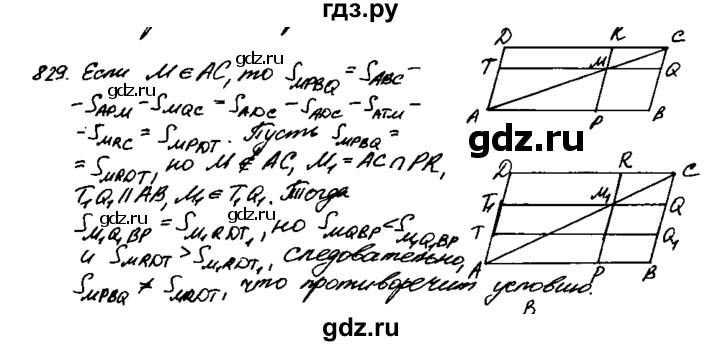 гдз.ру
829. Если M ∈ AC, то S_MPBQ = S_ABC −
− S_APM − S_MQC = S_ADC − S_ATM −
− S_MRC = S_MRDT. Пусть S_MPBQ =
= S_MRDT, но M ∉ AC, M₁ = AC ∩ PR,
T₁Q₁ ∥ AB, M₁ ∈ T₁Q₁. Тогда
S_M₁Q₁BP = S_M₁RDT₁, но S_MQBP < S_M₁Q₁BP
и S_MRDT > S_M₁RDT₁, следовательно,
S_MPBQ ≠ S_MRDT, что противоречит условию.
D R C
T M Q
A P B
D R C
T₁ M₁ Q
T Q₁
A P B
B
gdz.ru
gdz.ru
gdz.ru
gdz.ru
gdz.ru
gdz.ru
gdz.ru
gdz.ru
gdz.ru